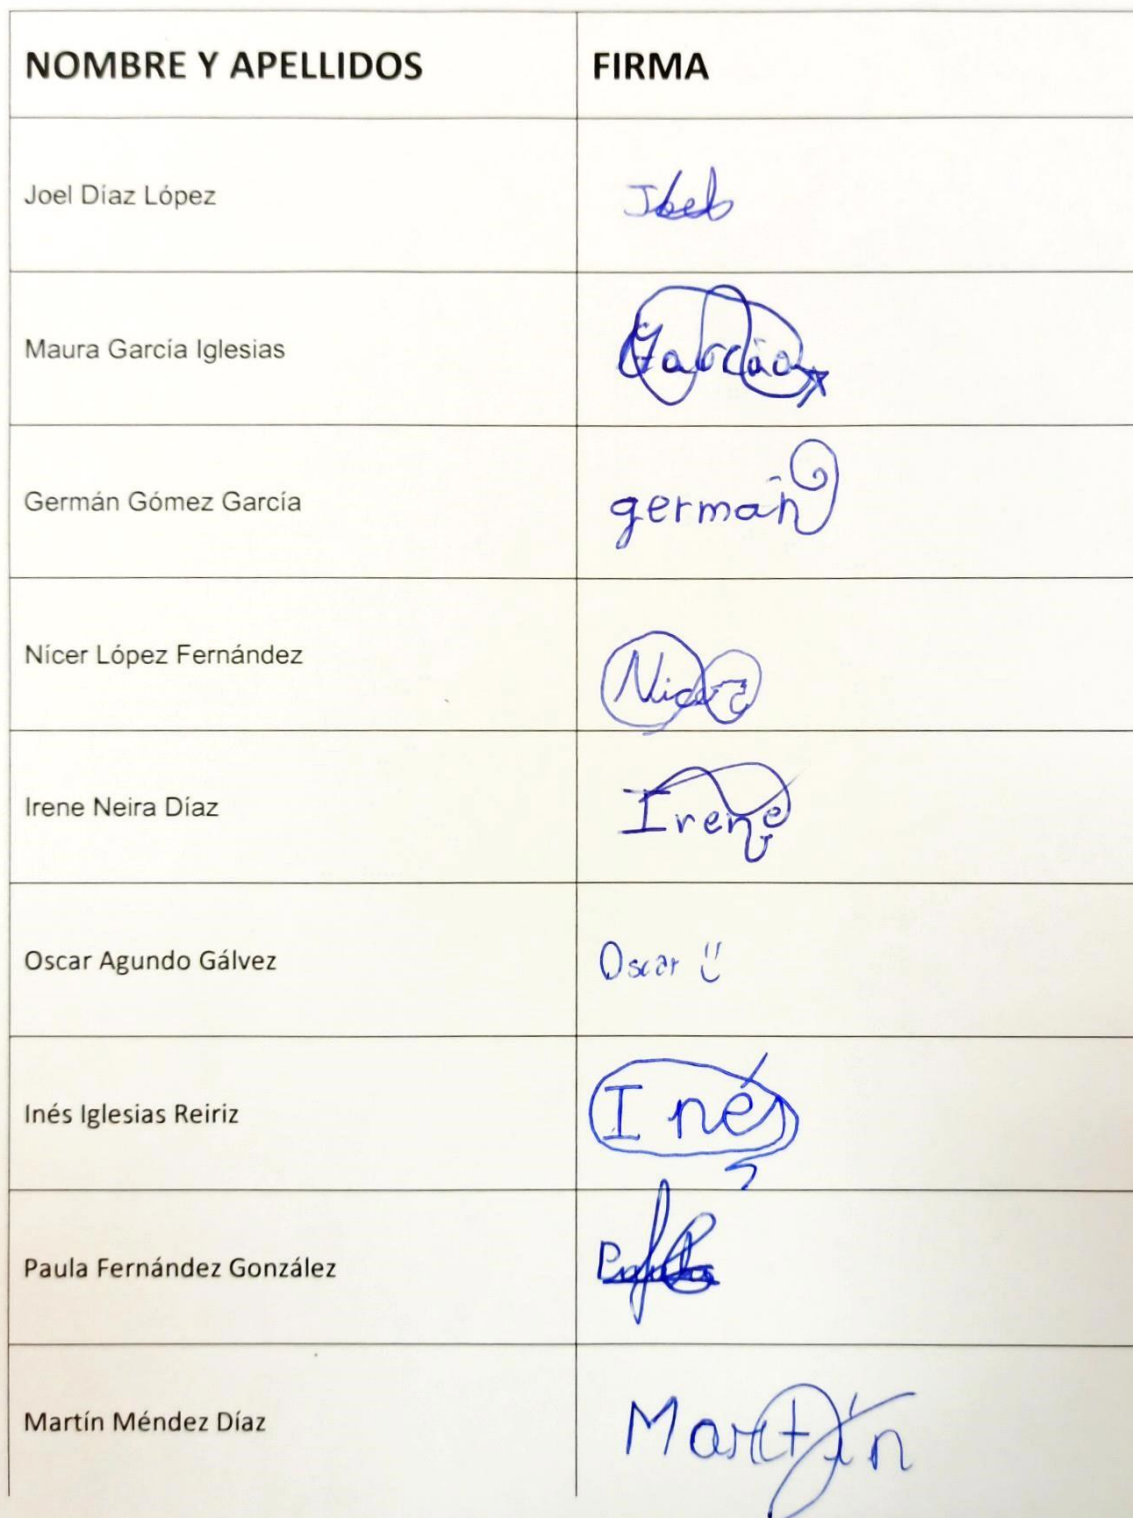 NOMBRE Y APELLIDOS FIRMA
Joel Díaz López Joel
Maura García Iglesias García
Germán Gómez García germán
Nícer López Fernández Nícer
Irene Neira Díaz Irene
Oscar Agundo Gálvez Oscar
Inés Iglesias Reiriz Inés
Paula Fernández González Paula
Martín Méndez Díaz Martín